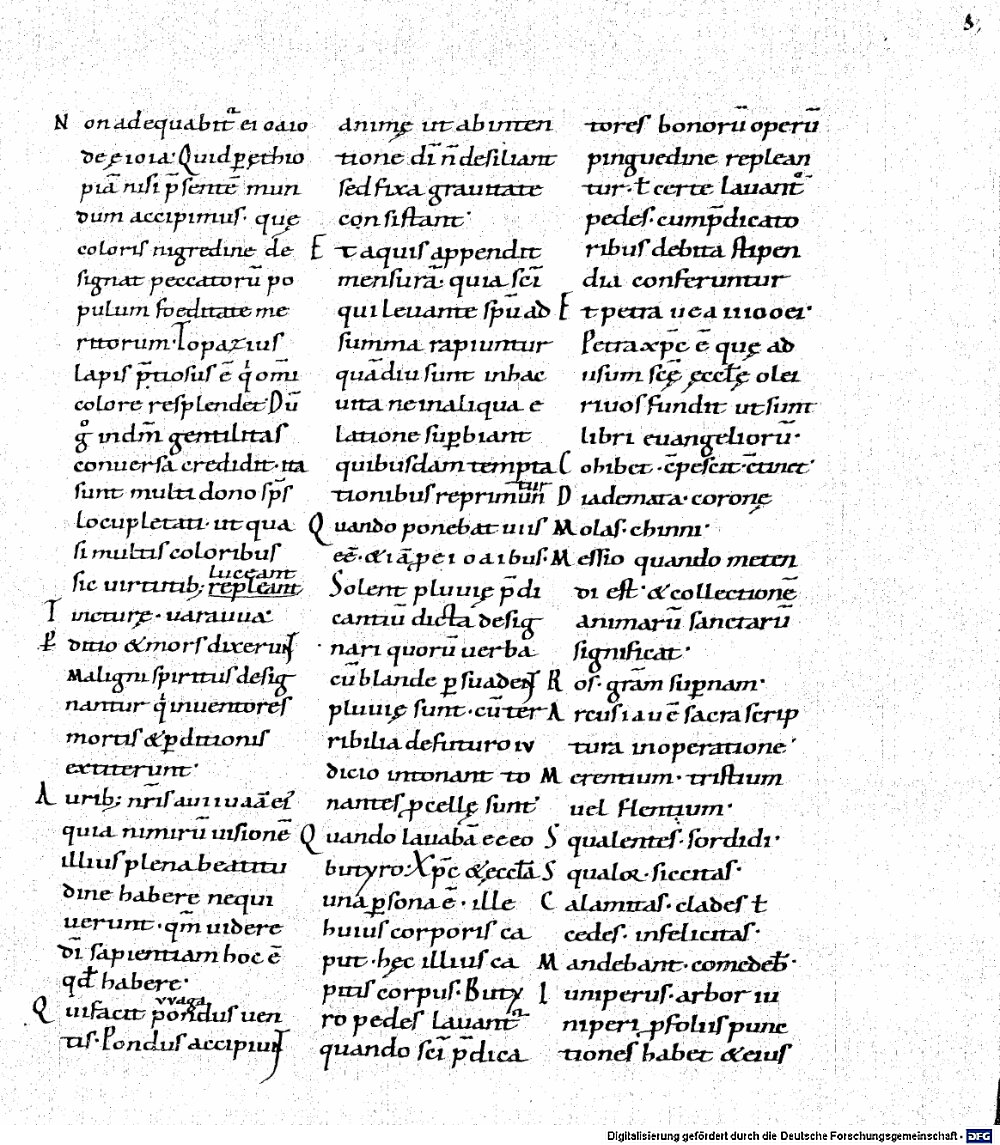 5,
N on adequabit᷑ ei oaio
de ęioia· Quid p̱ ęthio
piā nisi p̄sentē mun
dum accipimus· quę
coloris nigredine de
signat peccatorū po
pulum foeditate me
ritorum· Topazius
lapis p̄tiosus ē q̇ om̄i
colore resplendet· Dū
g̊ indm̄ gentilitas
conuersa credidit· ita
sunt multi dono sp̄s
locupletati· ut qua
si multis coloribus
luceant
sic uirtutib; repleant
T incturę· uarauua·
P̱ ditio & mors dixerunt
Maligni spiritus desig
nantur q̇ inuentores
mortis & p̱ditionis
extiterunt·
A urib; nr̄is auiiuaā ei᷑
quia nimirū uisionē
illius plena beatitu
dine habere nequi
uerunt· qm̄ uidere
dī sapientiam hoc ē
qđ habere·
vvaga
Q ui facit pondus uen
tis· Pondus accipiunt
animę ut ab inten
tione dī n̄ desiliant
sed fixa grauitate
consistant·
E t aquis appendit
mensurā· quia sc̄i
qui leuante sp̄u ad
summa rapiuntur
quādiu sunt in hac
uita ne in aliqua e
latione sup̱biant
quibusdam tempta
tionibus reprimun̄tur
Q uando ponebat uiis
eē· & iā p̱cioaibus·
Solent pluuię p̄di
cantiū dicta desig
nari quorū uerba
cū blande p̱suadent
pluuię sunt· cū ter
ribilia de futuro iu
dicio intonant to
nantes p̱cellę sunt·
Q uando lauabā eceo
butyro· Xp̄c & eccłā
una p̱sona ē· ille
huius corporis ca
put· hęc illius ca
pitis corpus· Buty
ro pedes lauant᷑
quando sc̄i p̄dica
tores bonorū operū
pinguedine replean
tur· ł certe lauant᷑
pedes· cum p̄dicato
ribus debita stipen
dia conferuntur
E t petra uea iiiooei·
Petra xp̄c ē quę ad
usum sc̄ę eccłę olei
riuos fundit ut sunt
libri euangeliorū·
C ohibet· c̄pescit· c̄tinet·
D iademata· coronę
M olas· chinni·
M essio quando meten
di est· & collectionē
animarū sanctarū
significat·
R os· grām sup̱nam·
A rcus iauē sacra scrip
tura in operatione·
M erentium· tristium
uel flentium·
S qualentes· sordidi·
S qualor· siccitas·
C alamitas· clades ł
cedes· infelicitas·
M andebant· comedeb̄·
I umperus· arbor iu
niperi p̱ foliis punc
tiones habet & eius
Digitalisierung gefördert durch die Deutsche Forschungsgemeinschaft - DFG